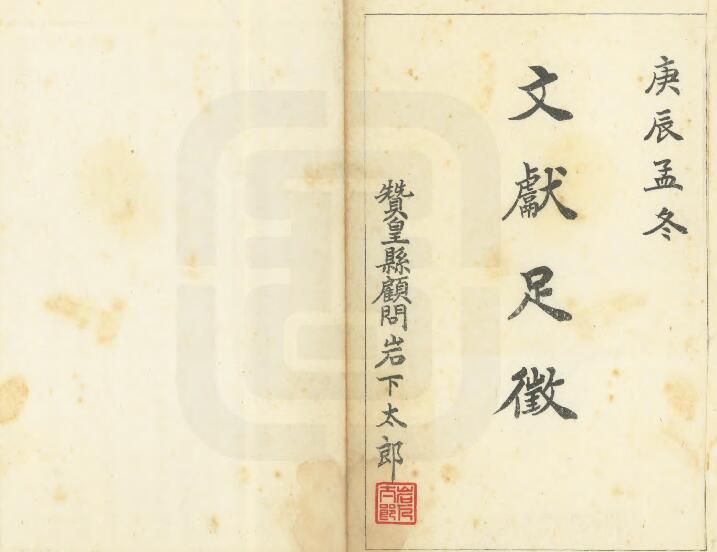 庚辰孟冬
文獻足徵
贊皇縣顧問岩下太郎
岩下太郎